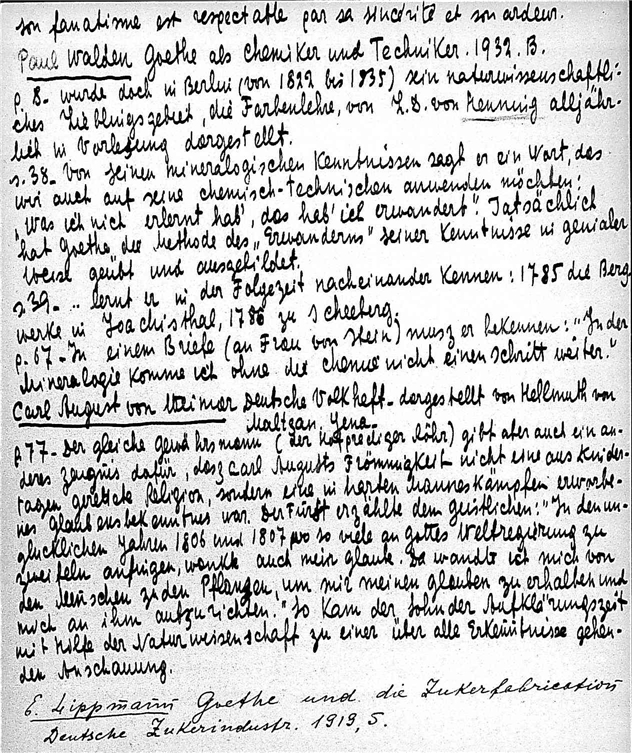 son fanatisme est respectable par sa sincérité et son ardeur.
Paul Walden Goethe als Chemiker und Techniker. 1932. B.
p. 8. wurde doch in Berlin (von 1822 bis 1835) sein naturwissenschaftli-
ches Lieblingsgebiet, die Farbenlehre, von L.D. von Henning alljähr-
lich in Vorlesung dargestellt.
s. 38. Von seinen mineralogischen Kenntnissen sagt er ein Wort, das
wir auch auf seine chemisch-technischen anwenden möchten:
"Was ich nich erlernt hab', das hab' ich erwandert". Tatsächlich
hat Goethe die Methode des „Erwanderns" seiner Kenntnisse in genialer
Weise geübt und ausgebildet.
s. 39- .. lernt er in der Folgezeit nacheinander Kennen: 1785 die Berg
werke in Joachisthal, 1786 zu Scheeberg.
p. 67- In einem Briefe (an Frau von Stein) musz er bekennen: "In der
Mineralogie komme ich ohne die chemie nicht einen schritt weiter."
Carl August von Weimar Deutsche Volkheft- dargestellt von Hellmuth von
Maltzan. Jena-
p 77- Der gleiche gewährsmann (der Hofprediger Röhr) gibt aber auch ein an-
deres zeugnis dafür, dasz Carl Augusts Frömmigkeit nicht eine aus Kinder-
tagen gerettete Religion, sondern eine in harten Manneskämpfen erworbe-
nes glaubensbekenntnes war. Der Fürst erzählte dem geistlichen: "In den un-
glücklichen Jahren 1806 und 1807 wo so viele an gottes Weltregierung zu
zweifeln anfingen, wankte auch mein glaube. Da wandte ich mich von
den Menschen zu den Pflanzen, um mir meinen glauben zu erhalten und
mich an ihm aufzurichten." So kam der Sohn der Aufklärungszeit
mit Hilfe der Naturweisenschaft zu einer über alle Erkenntnisse gehen-
den Anschauung.
E. Lippmann Goethe und die Zukerfabrication
Deutsche Zukerindustr. 1919, 5.